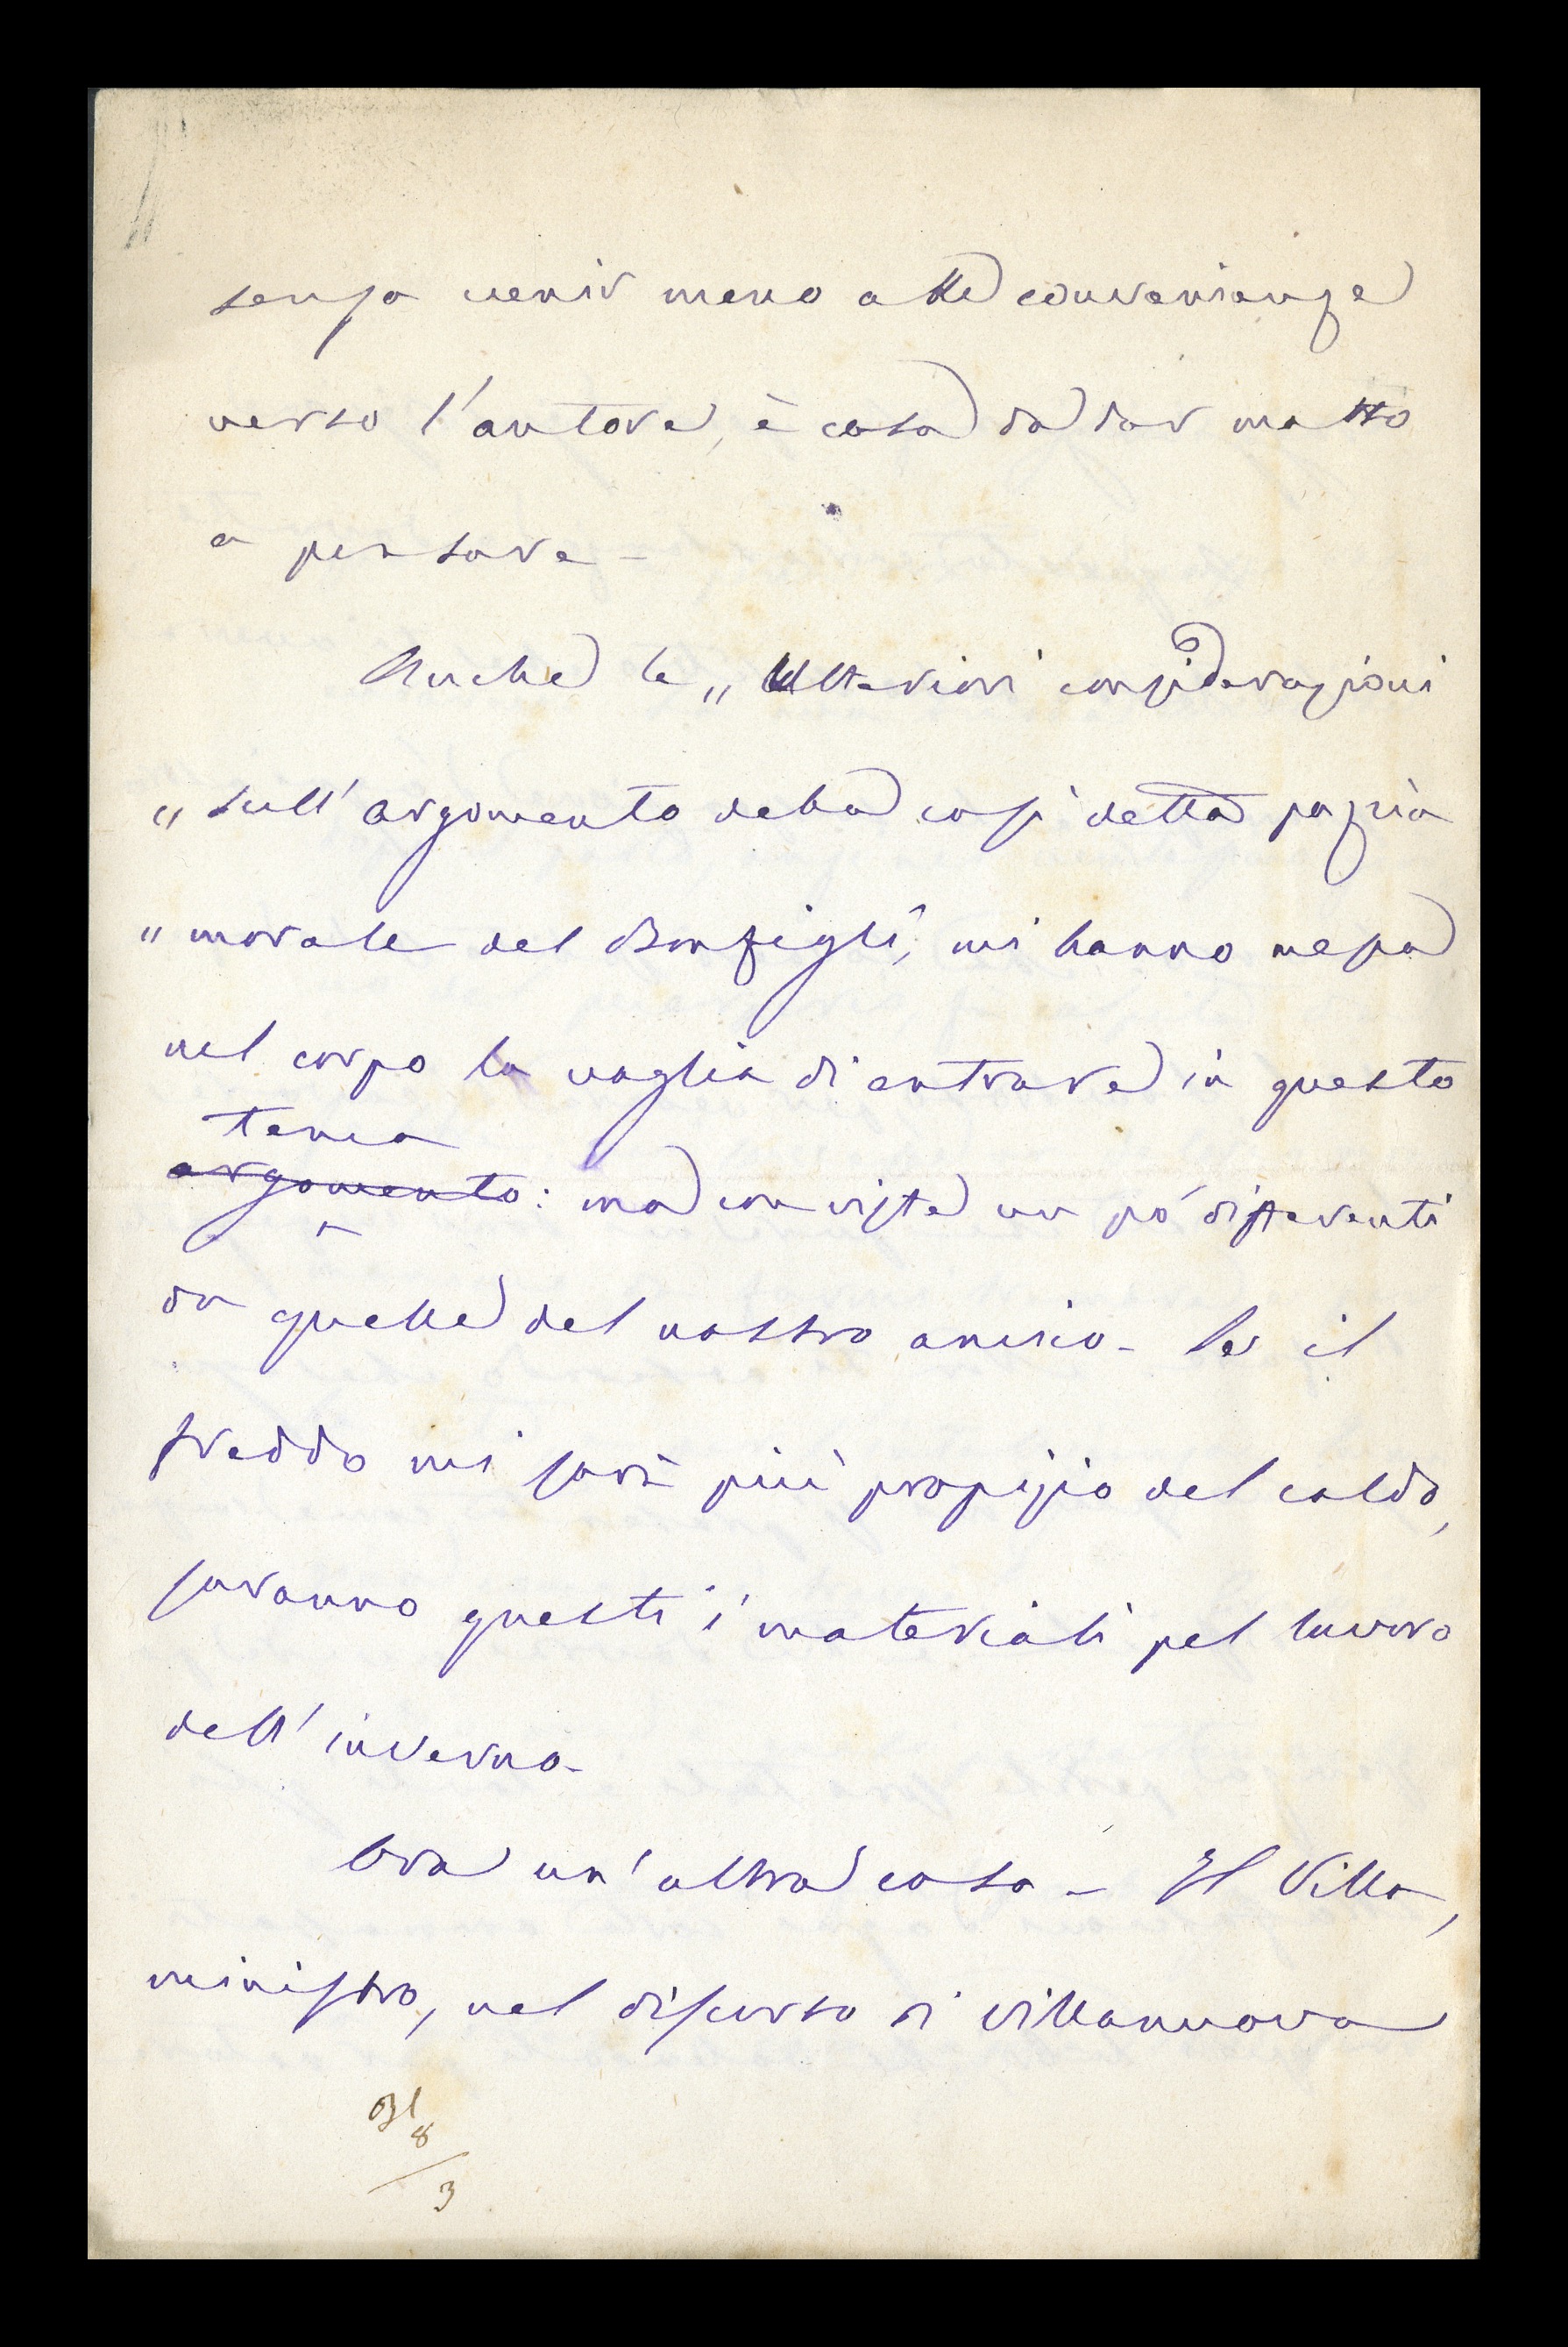 senza venir meno alle convenienze
verso l'autore, è cosa da dar molto
a pensare -
Anche le „ Ulteriori considerazioni
„ sull'argomento della così detta pazzia
„ morale del Bonfigli, mi hanno messa
nel corpo la voglia di entrare in questo
tema
argomento: ma con viste un pó differenti
da quelle del nostro amico - Se il
freddo mi sarà più propizio del caldo,
saranno questi i materiali pel lavoro
dell'inverno -
Ora un'altra cosa - Il Villa,
ministro, nel discorso di Villanuova